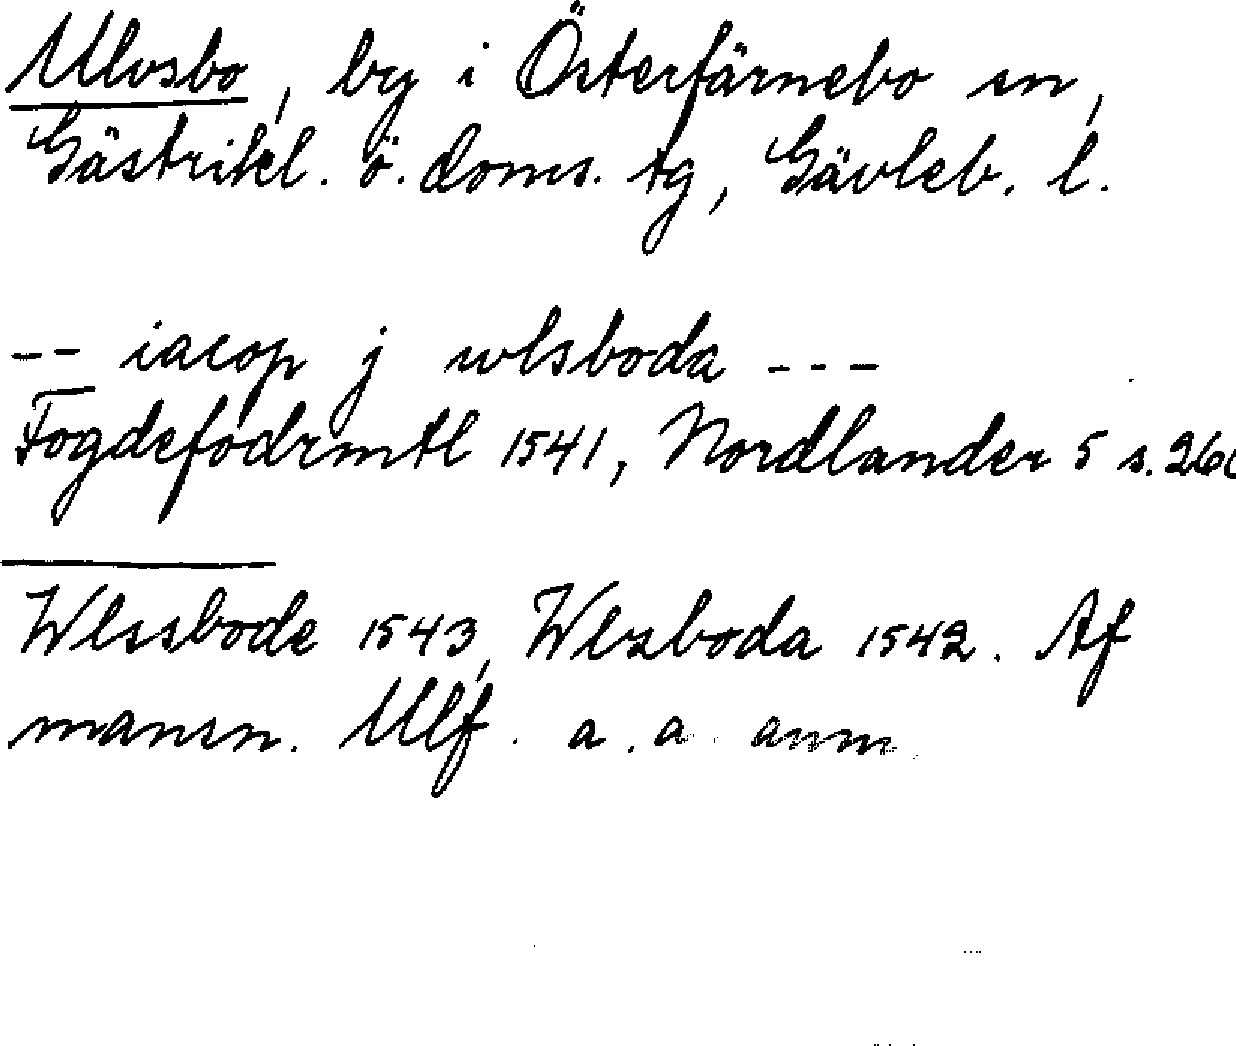 Ulvsbo, by i Österfärnebo sn,
Gästrikl. ö. doms. tg, Gävleb. l.
-- iacop j wlsboda ---
Fogdefodrmtl 1541, Nordlander 5 s. 26
Wlssbode 1543, Wlzboda 1542. Af
mansn. Ulf. a. a. anm.